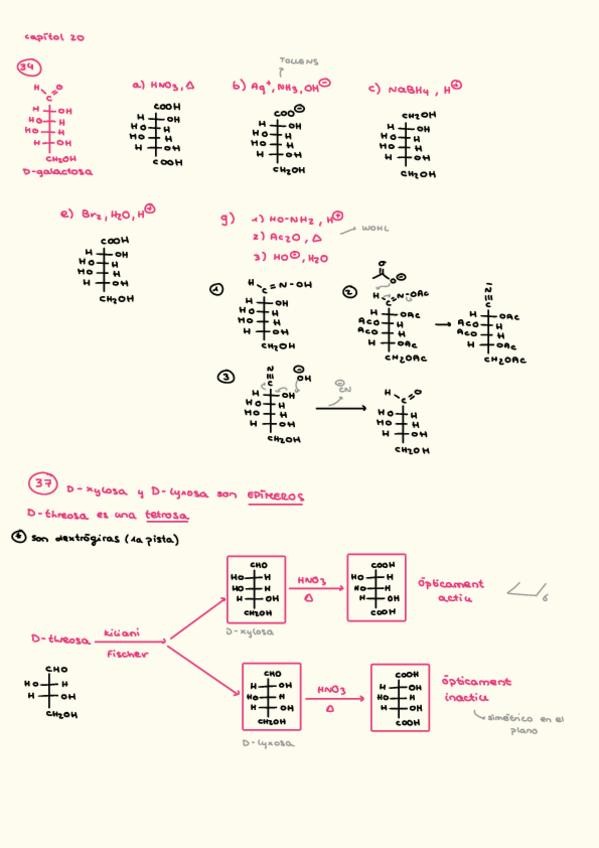 capítol 20
34
TOLLENS
a) HNO3, Δ
b) Ag+, NH3, OH⊖
c) NaBH4, H⊕
H O
C
H OH
HO H
HO H
H OH
CH2OH
D-galactosa
COOH
H OH
HO H
HO H
H OH
COOH
COO⊖
H OH
HO H
HO H
H OH
CH2OH
CH2OH
H OH
HO H
HO H
H OH
CH2OH
e) Br2, H2O, H⊕
g) 1) HO-NH2, H⊕
2) Ac2O, Δ
WOHL
3) HO⊖, H2O
COOH
H OH
HO H
HO H
H OH
CH2OH
1
H C=N-OH
H OH
HO H
HO H
H OH
CH2OH
2
O
O⊖
H C=N-OAc
H OAc
AcO H
AcO H
H OAc
CH2OAc
N
C
H OAc
AcO H
AcO H
H OAc
CH2OAc
3
N
C
⊖OH
H OH
HO H
HO H
H OH
CH2OH
⊖CN
H O
C
HO H
HO H
H OH
CH2OH
37
D-xylosa y D-lyxosa son EPÍMEROS
D-threosa es una tetrosa
son dextrógiras (1a pista)
D-threosa
Kiliani
Fischer
CHO
HO H
H OH
CH2OH
CHO
HO H
HO H
H OH
CH2OH
D-xylosa
HNO3
Δ
COOH
HO H
HO H
H OH
COOH
Òpticament
actiu
6
CHO
H OH
HO H
H OH
CH2OH
D-lyxosa
HNO3
Δ
COOH
H OH
HO H
H OH
COOH
òpticament
inactiu
simétrico en el
plano